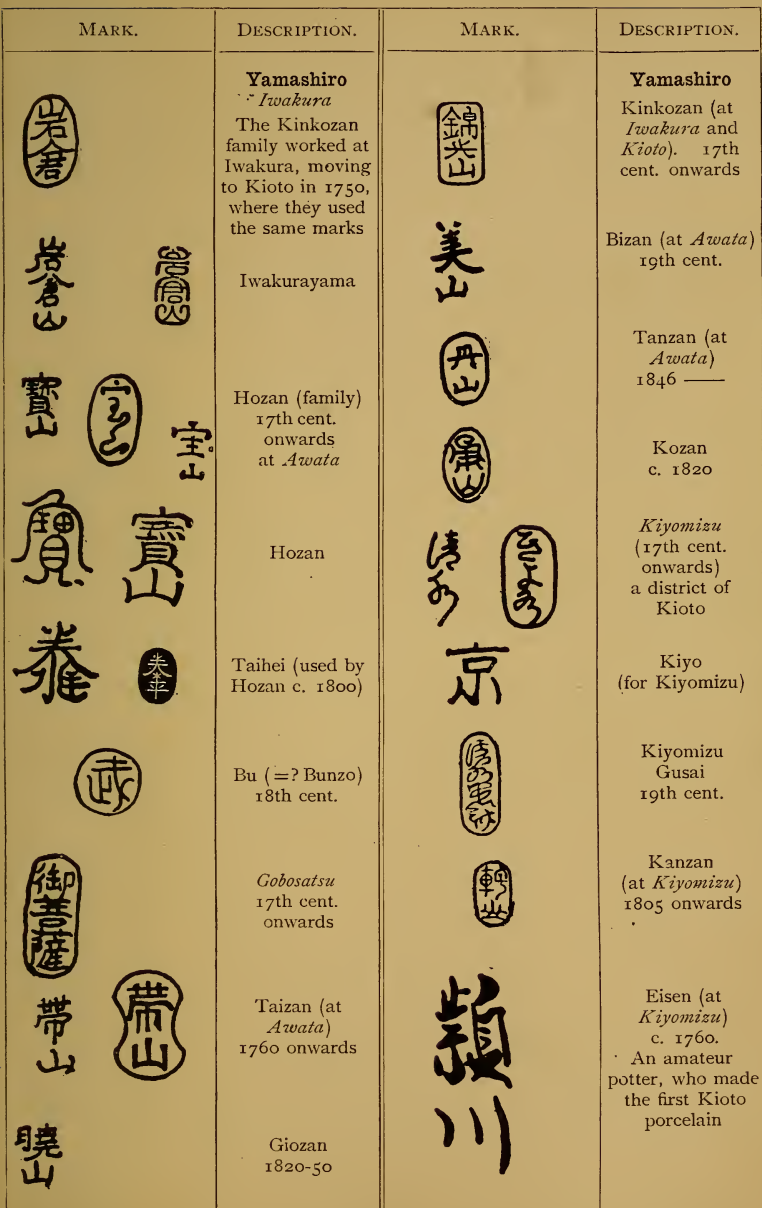 MARK.
DESCRIPTION.
MARK.
DESCRIPTION.
Yamashiro
Iwakura
The Kinkozan
family worked at
Iwakura, moving
to Kioto in 1750,
where they used
the same marks
岩倉山
Iwakurayama
寶山
宝山
Hozan (family)
17th cent.
onwards
at Awata
寶山
Hozan
Taihei (used by
Hozan c. 1800)
武
Bu (=? Bunzo)
18th cent.
御菩薩
Gobosatsu
17th cent.
onwards
帯山
帯山
Taizan (at
Awata)
1760 onwards
曉山
Giozan
1820-50
Yamashiro
錦光山
Kinkozan (at
Iwakura and
Kioto). 17th
cent. onwards
美山
Bizan (at Awata)
19th cent.
丹山
Tanzan (at
Awata)
1846 ——
Kozan
c. 1820
清水
Kiyomizu
(17th cent.
onwards)
a district of
Kioto
京
Kiyo
(for Kiyomizu)
Kiyomizu
Gusai
19th cent.
Kanzan
(at Kiyomizu)
1805 onwards
頴川
Eisen (at
Kiyomizu)
c. 1760.
An amateur
potter, who made
the first Kioto
porcelain